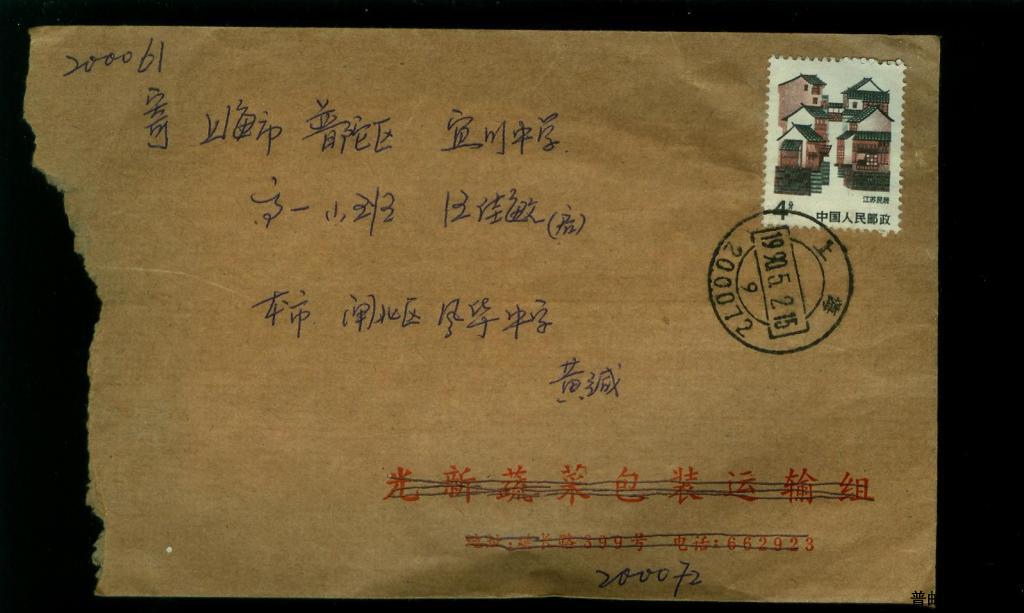 200061
寄 上海市 普陀区 宜川中学
高一(5)班 汪佳敏(启)
江苏民居
4分
中国人民邮政
上海
1990.5.2.15
9
200072
本市 闸北区 风华中学
黄缄
光新蔬菜包装运输组
地址:延长路399号 电话:662923
200072
普邮